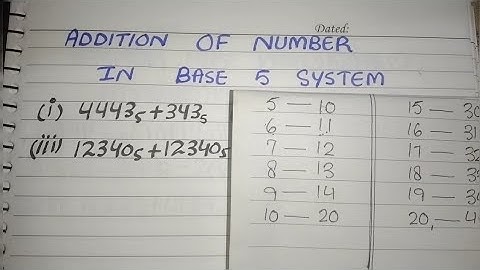 Dated:
ADDITION OF NUMBER
IN BASE 5 SYSTEM
(i) 4443₅+343₅
(iii) 12340₅+12340₅
5 — 10
6 — 11
7 — 12
8 — 13
9 — 14
10 — 20
15 — 30
16 — 31
17 — 32
18 — 33
19 — 34
20 — 4